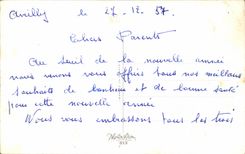 le 27-12-57
Chers Parents
Au seuil de la nouvelle année
nous venons vous offrir tous nos meilleurs
souhaits de bonheur et de bonne santé
pour cette nouvelle année.
Nous vous embrassons tous les trois